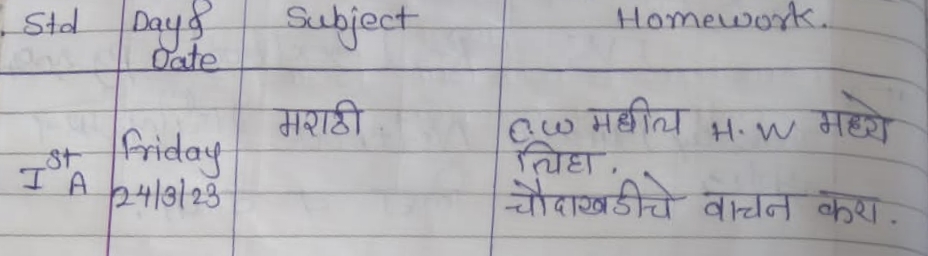 Std Day & Subject Homework.
Date
मराठी. C.W मधील H.W मध्ये
Ist A Friday लिहा.
24/3/23 चौदाखडीचे वाचन करा.